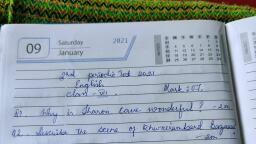 09
Saturday
January
2021
2nd periodic Test 2021
English
Class - VI
Mark 20
Q1. Why is Sharon cave wonderful? - 2m
Q2. Describe the scene of